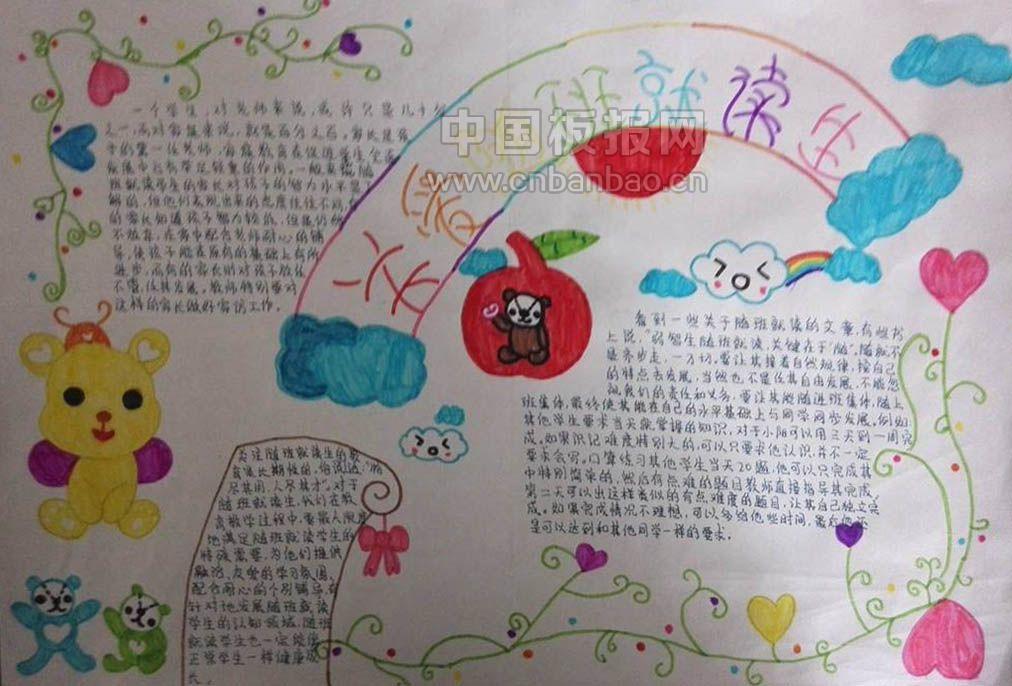 关爱随班就读生
中国板报网
www.cnbanbao.cn
一个学生,对老师来说,或许只是几十分
之一,而对家庭来说,就是百分之百。家长是孩
子的第一任老师,家庭教育在促进学生全面
发展中占有举足轻重的作用。一般来说,随
班就读学生的家长对孩子的智力水平是了
解的,但他们表现出来的态度往往不同,有
的家长知道孩子智力较低,但是仍然
不放弃,在家中配合老师耐心的辅
导,使孩子能在原有的基础上有所
进步,而有的家长则对孩子放任
不管,任其发展。教师特别要对
这样的家长做好家访工作。
看到一些关于随班就读的文章,有些书
上说,“弱智生随班就读,关键在于‘随’,随就不
是齐步走,一刀切,要让其接着自然规律,按自己
的特点去发展,当然也不是任其自由发展,不能忽
视我们的责任和义务,要让其能随进班集体,随上
班集体,最终使其能在自己的水平基础上与同学同步发展。例如:
其他学生要求当天就掌握的知识,对于小阳可以用三天到一周完
成。如果识记难度特别大的,可以只要求他认识,并不一定
要求会写。口算练习其他学生当天20题,他可以只完成其
中特别简单的,然后有点难的题目教师直接指导其完成,
第二天可以出这样类似的有点难度的题目,让其自己独立完
成。如果完成情况不理想,可以多给他些时间,最后他
是可以达到和其他同学一样的要求。
关注随班就读生的教
育是长期性的,俗说述“物
尽其用,人尽其才”,对于
随班就读生,我们在教
育教学过程中,要最大限度
地满足随班就读学生的
特殊需要,为他们提供
融洽、友爱的学习氛围,
配合耐心的个别辅导,有
针对地发展随班就读
学生的认知领域,随班
就读学生也一定能像
正常学生一样健康成
长。